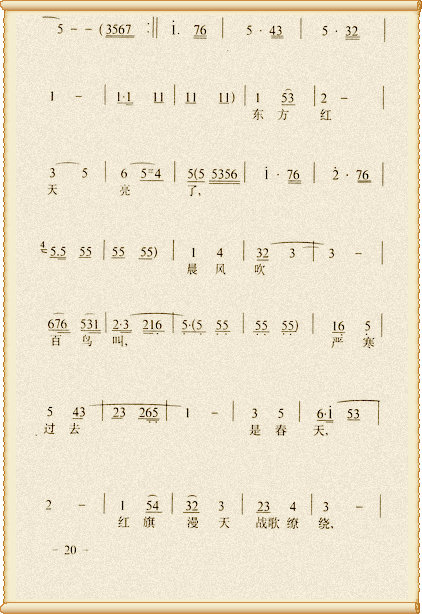 5 - - (3567 :|| i. 76 | 5 · 43 | 5 · 32 |
1 - | 1·1 11 | 11 11) | 1 53 | 2 - |
东 方 红
3 5 | 6 5=4 | 5(5 5356 | i · 76 | 2 · 76 |
天 亮 了,
4 5.5 55 | 55 55) | 1 4 | 32 3 | 3 - |
晨 风 吹
676 531 | 2·3 216 | 5·(5 55 | 55 55) | 16 5 |
百 鸟 叫, 严 寒
5 43 | 23 265 | 1 - | 3 5 | 6·i 53 |
过 去 是 春 天,
2 - | 1 54 | 32 3 | 23 4 | 3 - |
红 旗 漫 天 战歌 缭 绕,
- 20 -